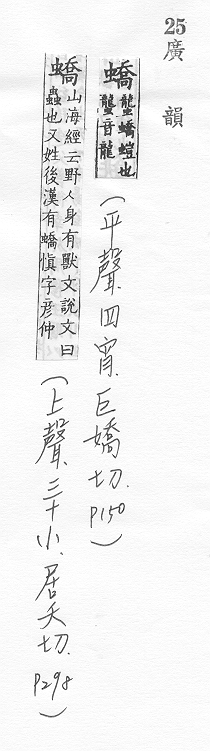 25廣韻
蟜
蠪蟜螘也
蠪音龍
(平聲四宵.巨嬌切.P150)
蟜
山海經云野人身有獸文說文曰
蟲也又姓後漢有蟜慎字彥仲
(上聲.三十小.居夭切.P298)